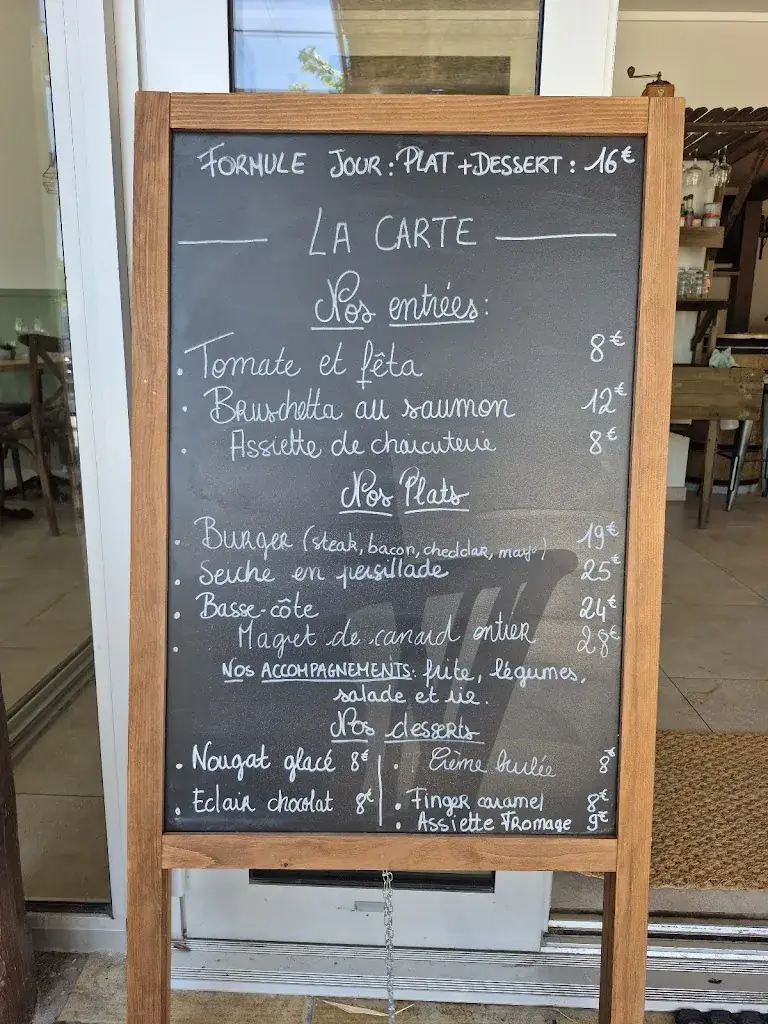 FORMULE JOUR : PLAT + DESSERT : 16€
LA CARTE
Nos entrées :
• Tomate et fêta 8€
• Bruschetta au saumon 12€
• Assiette de charcuterie 8€
Nos Plats
• Burger (steak, bacon, cheddar, mayo) 19€
• Seiche en persillade 25€
• Basse-côte 24€
• Magret de canard entier 28€
Nos ACCOMPAGNEMENTS : frite, légumes,
salade et riz.
Nos desserts
• Nougat glacé 8€
• Eclair chocolat 8€
• Crème brulée 8€
• Finger caramel 8€
• Assiette Fromage 9€